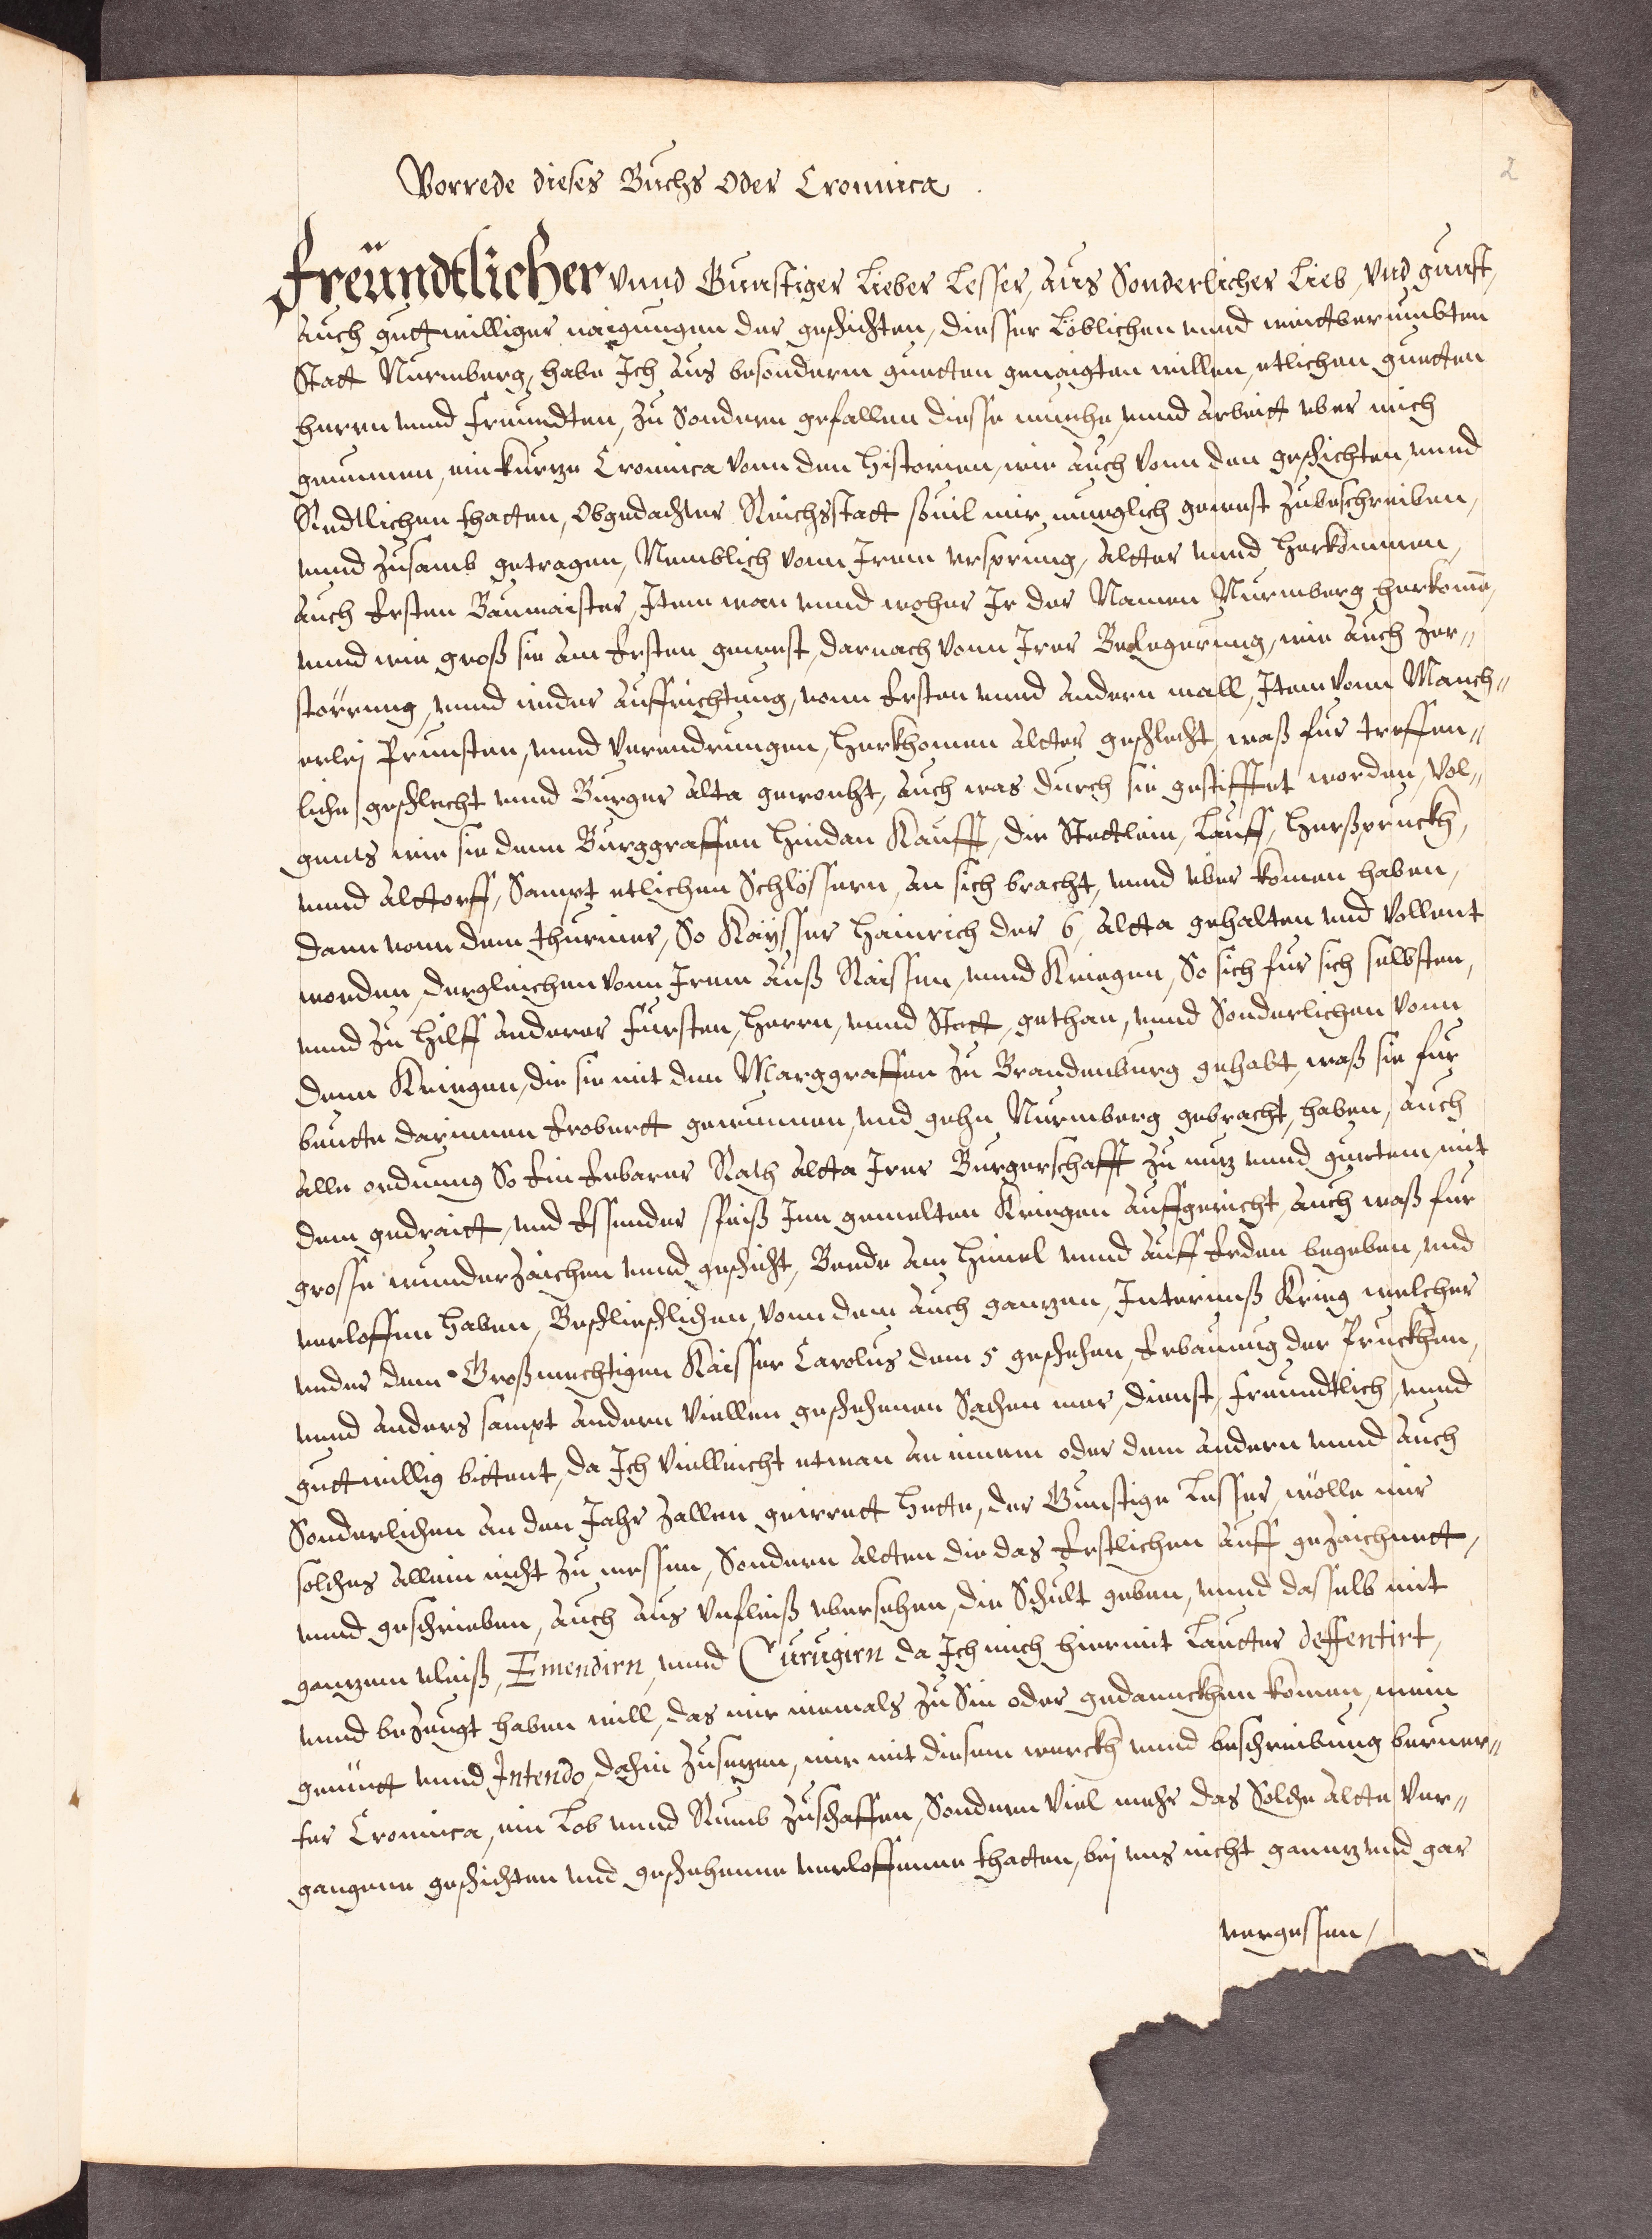 2
Vorrede dieses Buchs oder Cronnica.
Freündtlicher vnnd Gunstiger Lieber Lesser, Aus Sonderlicher Lieb, vnd gunst,
Auch guttwilliger naigungen der geschichten, diesser Löblichen vnnd weittberumbten
Statt Nurmberg, habe Ich Aus besonderm guetten genaigten willen, etlichen guetten
herrn vnnd freundten, zu Sondern gefallen diesse muehe vnnd Arbeitt vber mich
genummen, ein kurtze Cronnica vonn den Historien, wie auch vonn den geschichten, vnnd
Redtlichen thatten, Obgedachter Reichsstatt souil mir muglich gewest zubeschreiben,
vnnd zusamb getragen, Nemblich vonn Irem vrsprung, Altter vnnd herkommen,
Auch Ersten Baumaister, Item wan vnnd woher Ir der Namen Nurmberg herkome,
vnnd wie groß sie am Ersten gewest, darnach vonn Irer Belegerung, wie auch Zer„
störrung, vnnd wider Auffrichtung, vom Ersten vnnd Andern mall, Item vonn Manch„
erlej Prunsten, vnnd verendrungen, Herkhomen Altter geschlecht, waß fur treffen„
liche geschlecht vnnd Burger Alta gewonht, Auch was durch sie gestifftet worden, vol„
gents wie sie denn Burggraffen hindan Kaufft, die Stettlein, Lauff, Herßpruckh,
vnnd Alttorff, Sampt etlichen Schlössern, an sich bracht, vnnd vber komen haben,
dann vonn dem thurnier, So Kaysser Hainrich der 6, Altta gehalten vnd vollent
worden, dergleichen vonn Irem Auß Raissen, vnnd Kriegen, So sich fur sich selbsten,
vnnd zu hilff Anderer Fursten, Herrn, vnnd Stett, gethan, vnnd Sonderlichen vonn
denn Kriegen, die sie mit dem Marggraffen zu Brandenburg gehabt, waß sie fur
beutte darinnen Erobertt gewunnen, vnd gehn Nurmberg gebracht, haben, Auch
Alle ordnung So Ein Erbarer Rath Altta Irer Burgerschafft zu nutz vnnd guetem, mit
dem gedraitt, vnd Essender speiß Inn gemelten Kriegen Auffgericht, Auch waß fur
grosse wunderzaichen vnnd geschicht, Beede am Himel vnnd Auff Erden begeben, vnd
verloffen haben, Beschließlichen, vonn dem Auch gantzen, Interimß Krieg welcher
vnder dem Großmechtigen Kaisser Carolus dem 5 geschehen, Erbauung der Pruckhen,
vnnd Anders sampt Andern viellen geschehenen Sachen mer, dienst, Freundtlich, vnnd
guttwillig bittent, da Ich Villeicht etwan An einem oder dem Andern vnnd Auch
Sonderlichen An den Jahr zallen geirrett hette, der Gunstige Lesser, wölle mir
solches Allein nicht zu messen, Sondern Altten die das Erstlichen Auff gezaichnett,
vnnd geschrieben, Auch Aus Vnfleiß vbersehen, die Schult geben, vnnd dasselb mit
gantzem vleiß, Emendirn, vnnd Curugirn da Ich mich hiermit Lautter deffentirt,
vnnd bezeugt haben will, das mir niemals zu Sin oder gedannckhen komen, mein
gemütt vnnd Intendo, dahin zusetzen, mir mit diesem werckh vnnd beschreibung beruer„
ter Cronnica, ein Lob vnnd Rumb zuschaffen, Sondern viel mehr das Solche Altte Ver„
gangene geschichten vnd geschehenne verloffenne thatten, bej vns nicht ganntz vnd gar
vergessen,